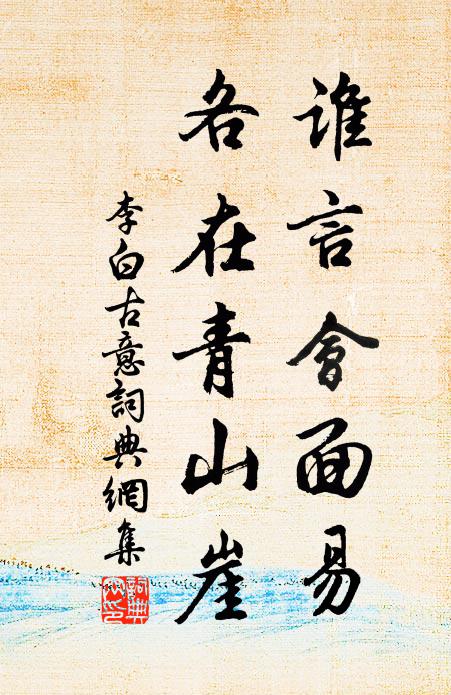 誰言會面易
各在青山崖
李白古意詞典網集